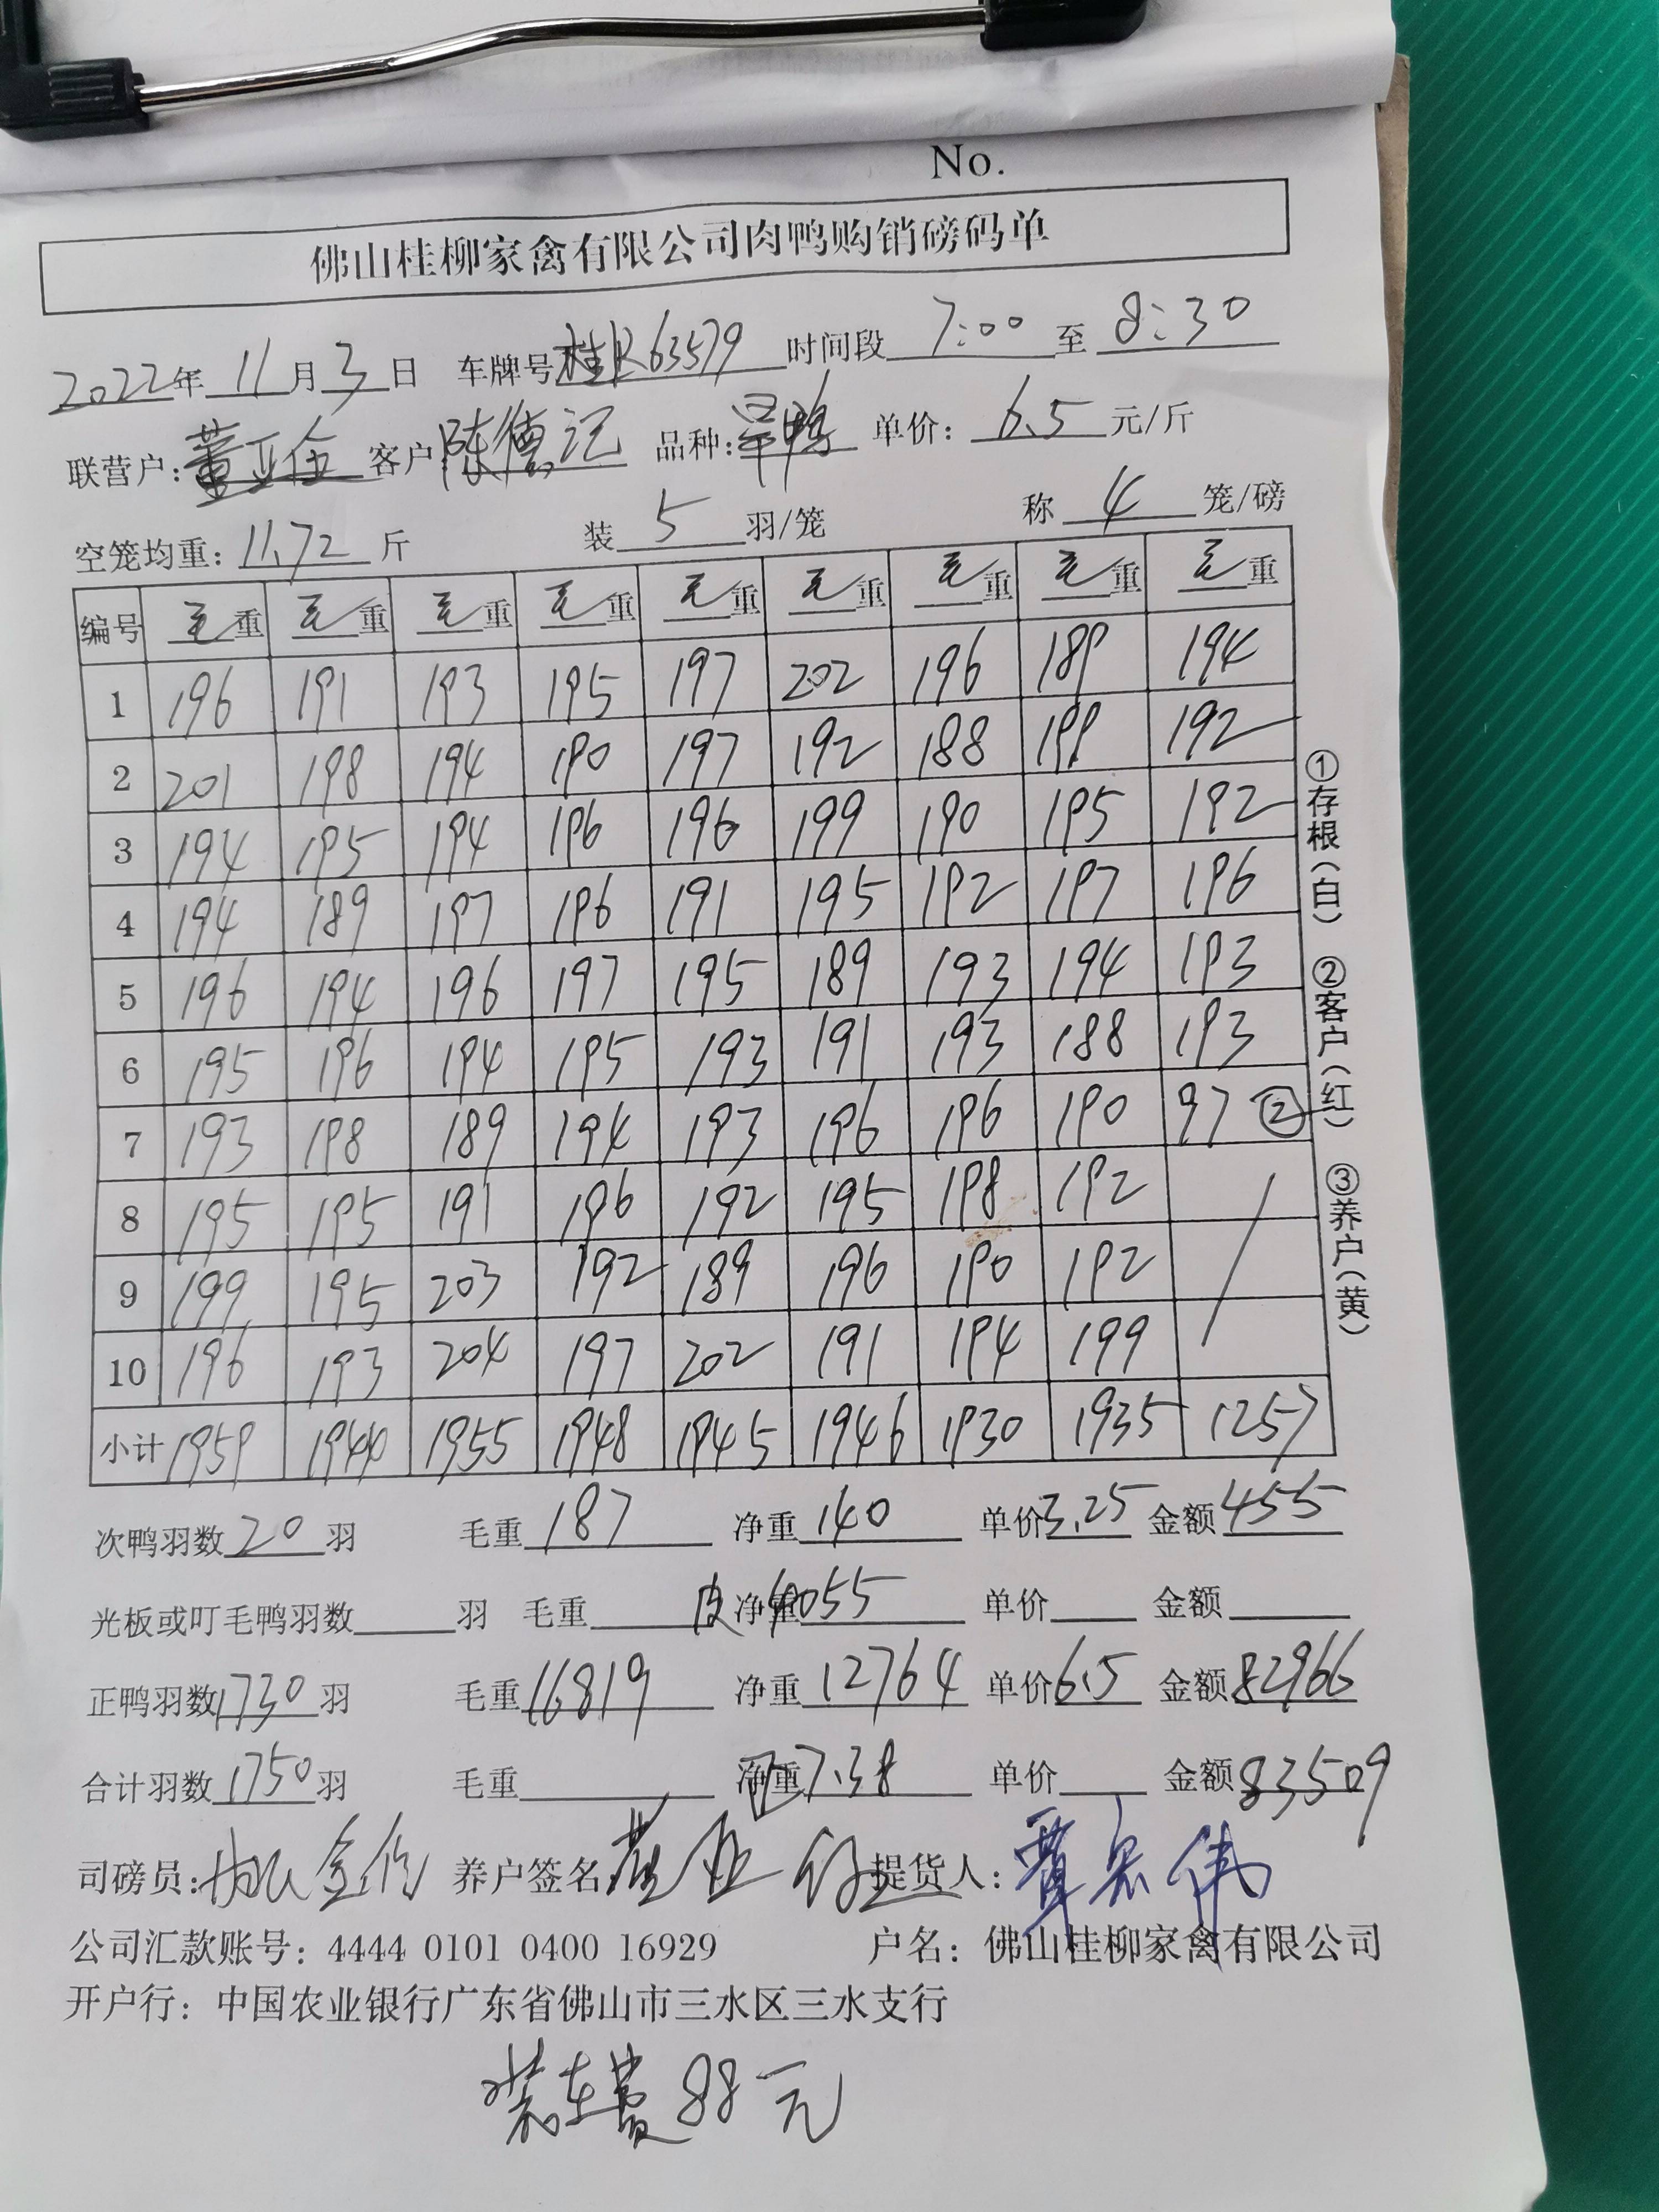 No.
佛山桂柳家禽有限公司肉鸭购销磅码单
2022年 11月 3日 车牌号桂R63579 时间段 7:00 至 8:30
联营户: 董亚金 客户 陈德记 品种: 鸭 单价: 6.5 元/斤
空笼均重: 11.72 斤 装 5 羽/笼 称 4 笼/磅
编号 毛重 毛重 毛重 毛重 毛重 毛重 毛重 毛重 毛重
1 196 191 193 195 197 202 196 189 194
2 201 198 194 190 197 192 188 199 192
3 194 195 194 196 196 199 190 195 192
4 194 189 197 196 191 195 192 197 196
5 196 194 196 197 195 189 193 194 193
6 195 196 194 195 193 191 193 188 193
7 193 198 189 194 193 196 196 190 97 ②
8 195 195 191 196 192 195 198 192
9 199 195 203 192 189 196 190 192
10 196 193 204 197 202 191 194 199
小计 1959 1944 1955 1948 1945 1946 1930 1935 1257
次鸭羽数 20 羽 毛重 187 净重 140 单价 3.25 金额 455
光板或叮毛鸭羽数 羽 毛重 皮 净重 4055 单价 金额
正鸭羽数 1730 羽 毛重 16819 净重 12764 单价 6.5 金额 82966
合计羽数 1750 羽 毛重 净重 7.38 单价 金额 83509
司磅员: 养户签名 董亚 提货人: 覃宏伟
公司汇款账号: 4444 0101 0400 16929 户名: 佛山桂柳家禽有限公司
开户行: 中国农业银行广东省佛山市三水区三水支行
装车费 88元
①存根(白) ②客户(红) ③养户(黄)